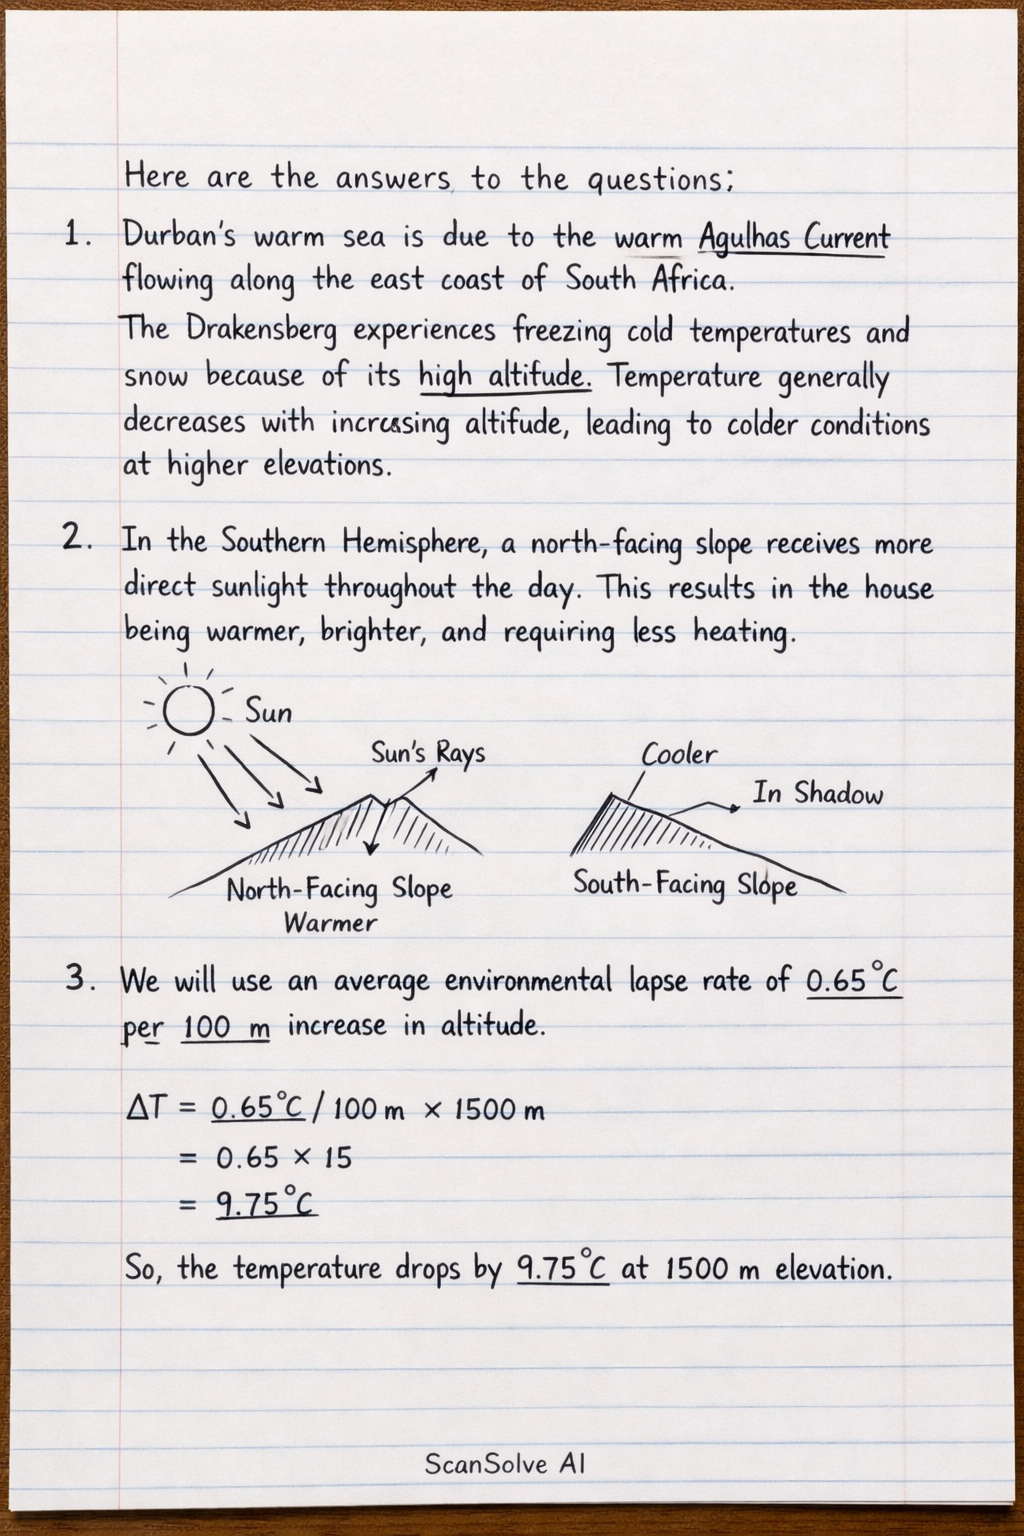 Here are the answers to the questions:
1. Durban's warm sea is due to the warm Agulhas Current
flowing along the east coast of South Africa.
The Drakensberg experiences freezing cold temperatures and
snow because of its high altitude. Temperature generally
decreases with increasing altifude, leading to colder conditions
at higher elevations.
2. In the Southern Hemisphere, a north-facing slope receives more
direct sunlight throughout the day. This results in the house
being warmer, brighter, and requiring less heating.
Sun
Sun's Rays
North-Facing Slope
Warmer
Cooler
In Shadow
South-Facing Slope
3. We will use an average environmental lapse rate of 0.65°C
per 100 m increase in altitude.
ΔT = 0.65°C / 100 m × 1500 m
= 0.65 × 15
= 9.75°C
So, the temperature drops by 9.75°C at 1500 m elevation.
ScanSolve AI